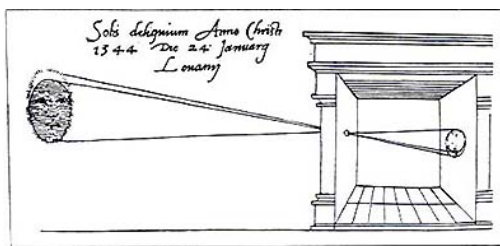 Solis deliquium Anno Christi
1544 Die 24 Januarij
Louanij